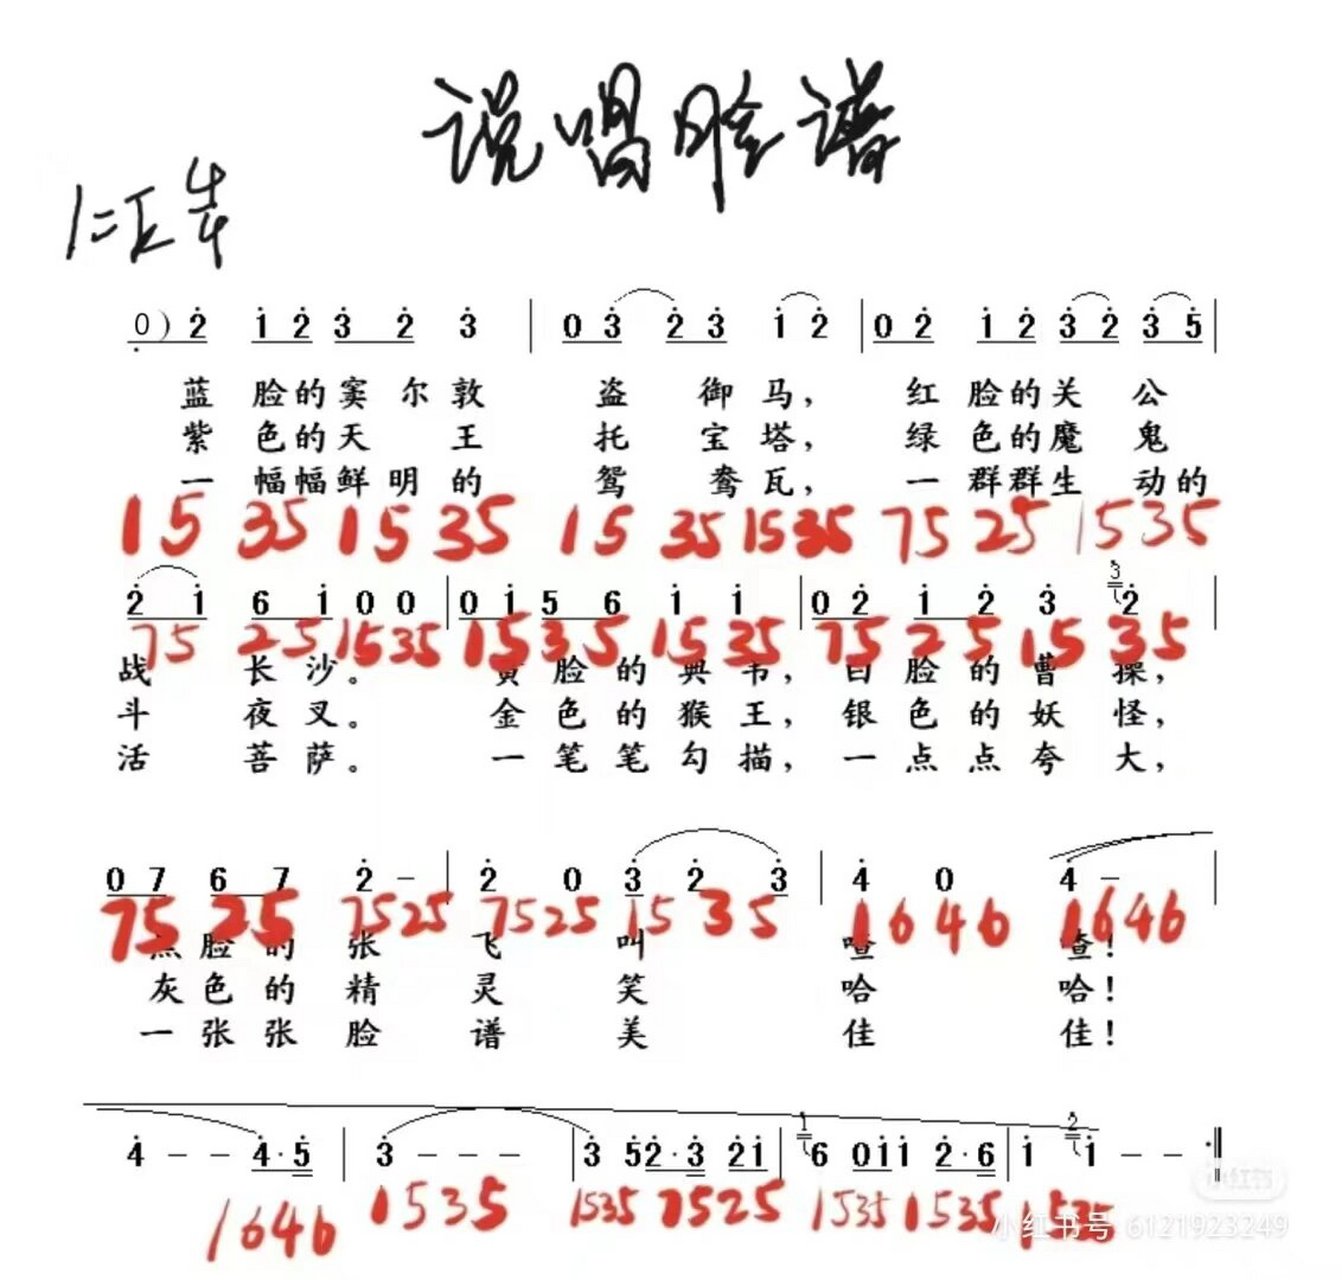 说唱脸谱
1=E 4/4
0) 2 1 2 3 2 3 | 0 3 2 3 1 2 | 0 2 1 2 3 2 3 5 |
蓝 脸的窦 尔敦 盗 御马, 红 脸的关 公
紫 色的天 王 托 宝塔, 绿 色的魔 鬼
一 幅幅鲜 明的 鸳 鸯瓦, 一 群群生 动的
15 35 15 35 15 35 15 35 75 25 15 35
2 1 6 1 0 0 | 0 1 5 6 1 1 | 0 2 1 2 3 3 2 |
75 25 15 35 15 35 15 35 75 25 15 35
战 长沙。 黄脸的典韦, 白脸的曹 操,
斗 夜叉。 金色的猴王, 银色的妖 怪,
活 菩萨。 一笔笔勾描, 一点点夸 大,
0 7 6 7 2 - | 2 0 3 2 3 | 4 0 4 - |
75 25 75 25 75 25 15 35 1646 1646
黑脸的 张 飞 叫 喳 喳!
灰色的 精 灵 笑 哈 哈!
一张张 脸 谱 美 佳 佳!
4 - - 4·5 | 3 - - - | 3 5 2·3 2 1 | 1 6 0 1 1 2·6 | 1 2 1 - - :‖
1646 1535 1535 7525 1535 1535 1535
小红书
小红书号 6121923249